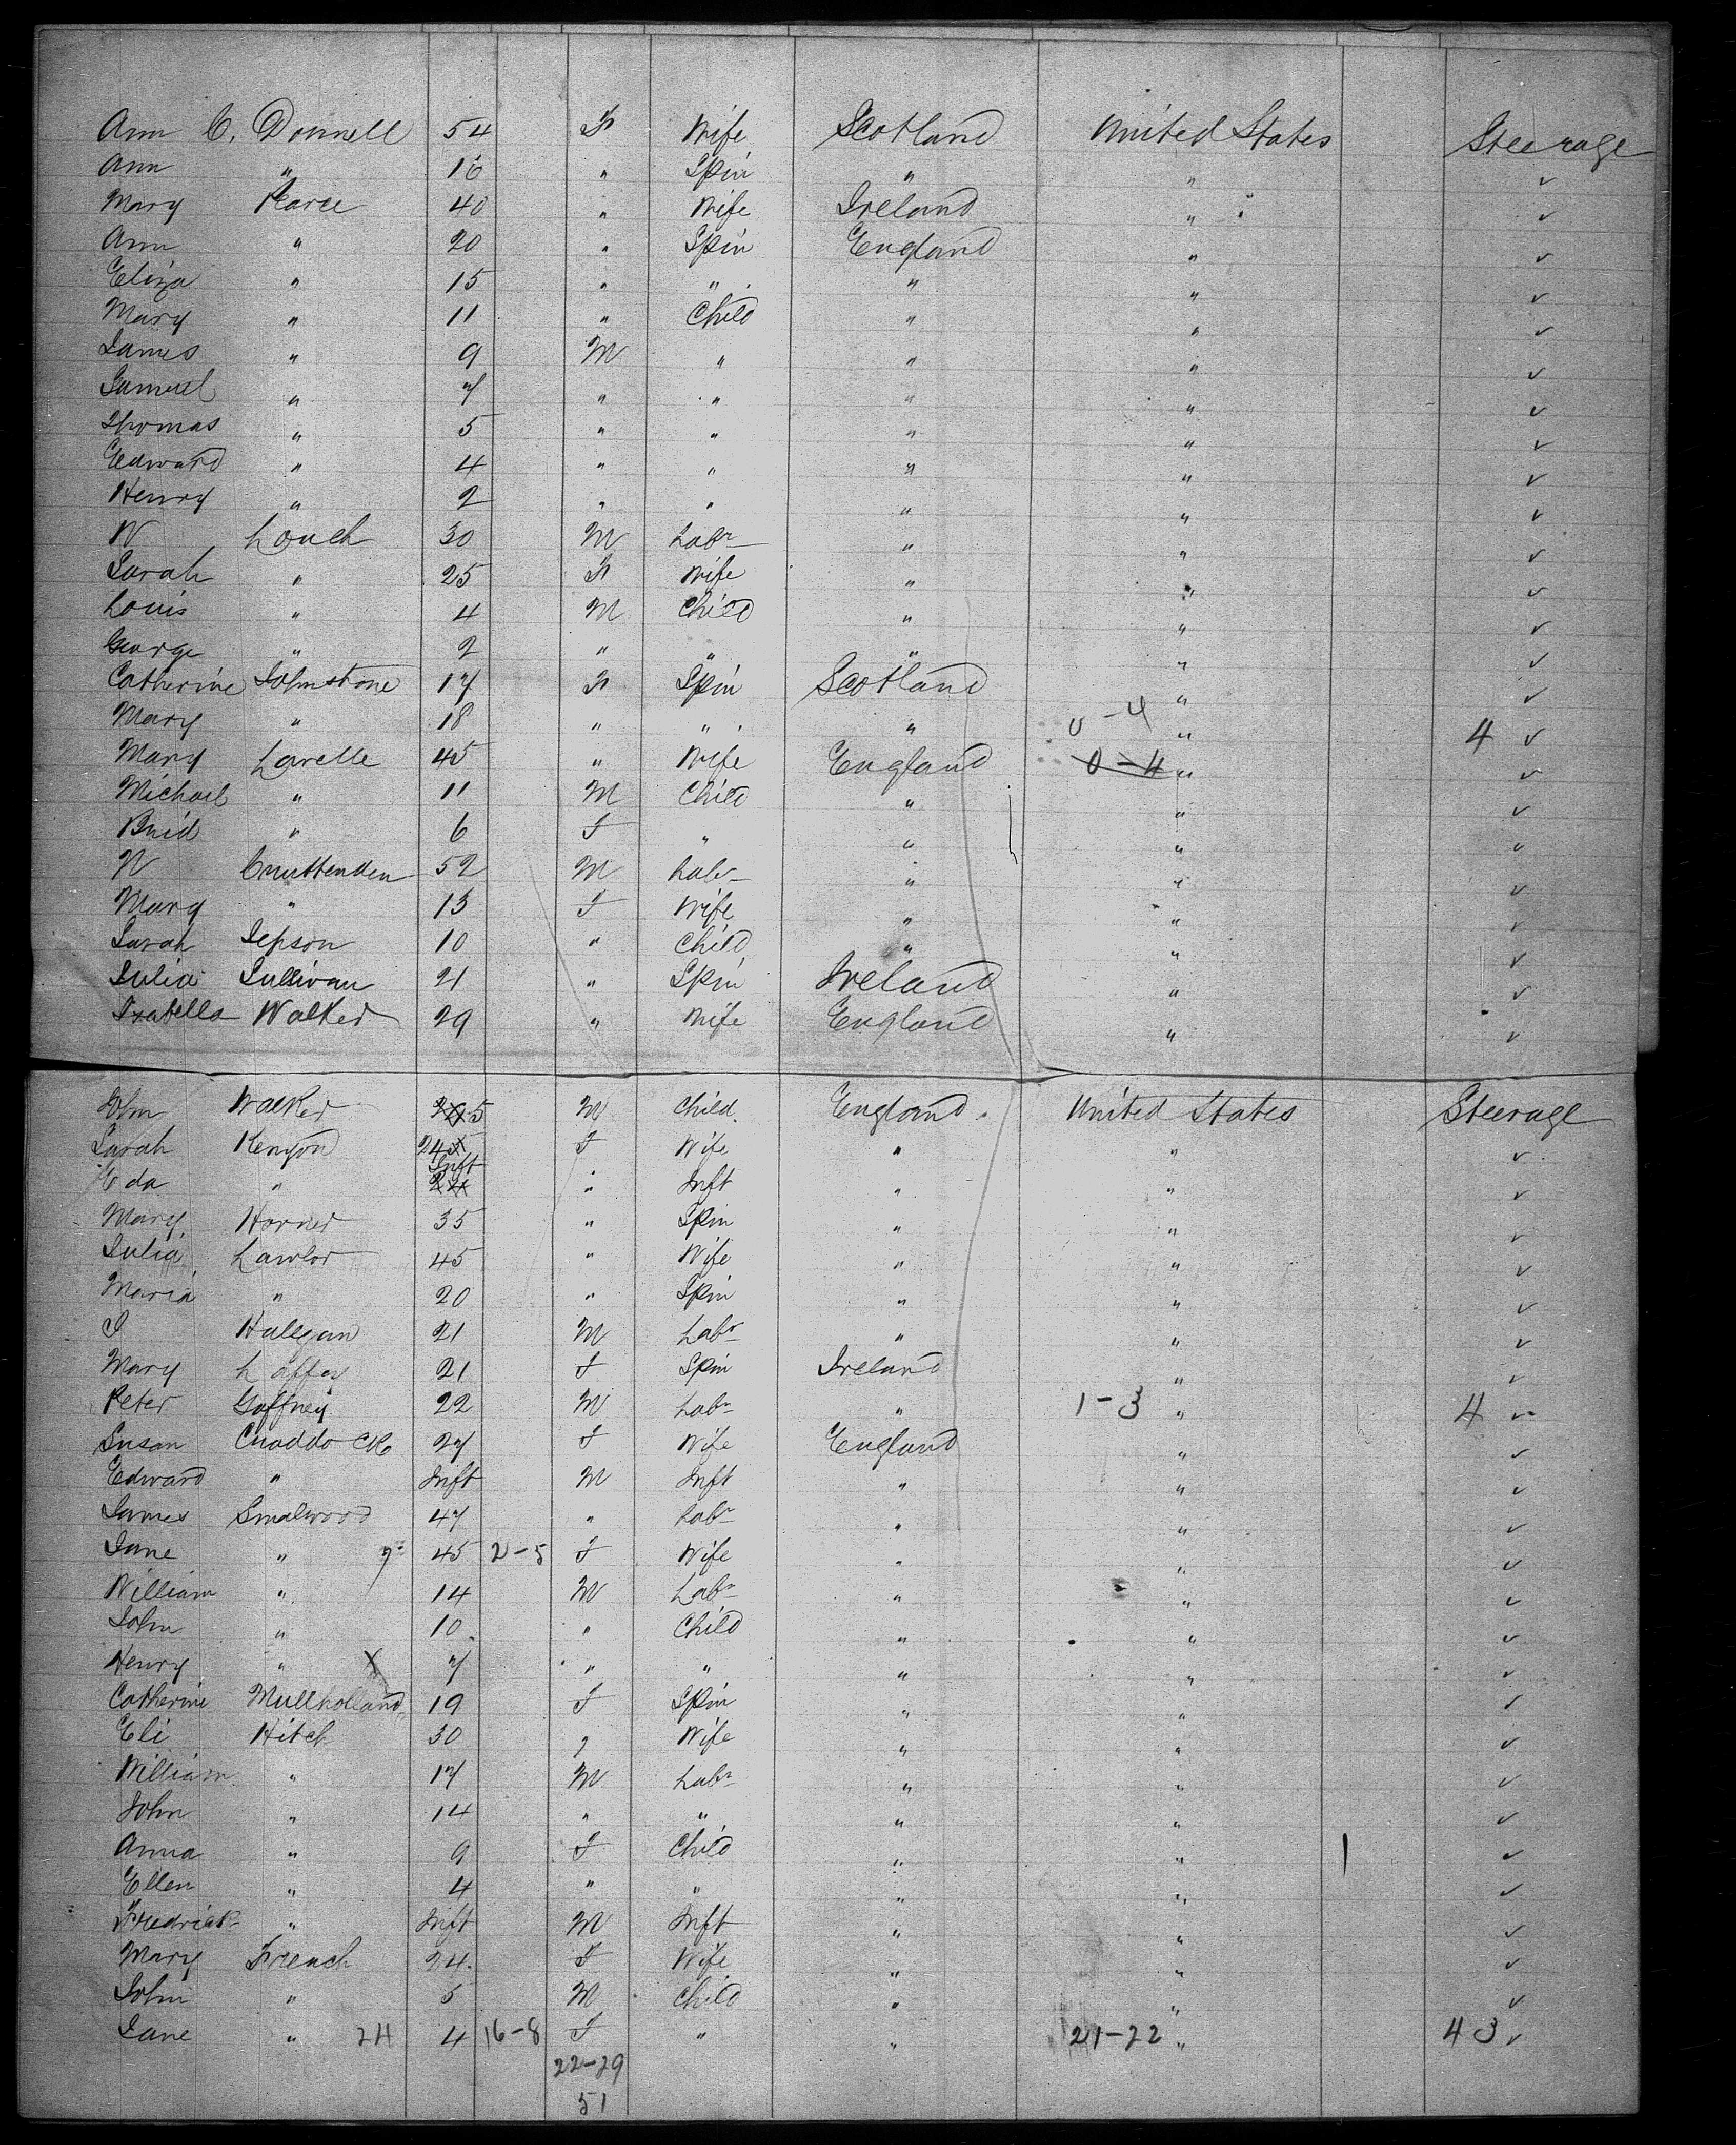 Ann C. Donnell 54 F Wife Scotland United States Steerage
Ann " 16 " Spin " " ✓
Mary Pearce 40 " Wife Ireland " ✓
Ann " 20 " Spin England " ✓
Eliza " 15 " " " " ✓
Mary " 11 " Child " " ✓
James " 9 M " " " ✓
Samuel " 7 " " " " ✓
Thomas " 5 " " " " ✓
Edward " 4 " " " " ✓
Henry " 2 " " " " ✓
W Louch 30 M Labr " " ✓
Sarah " 25 F Wife " " ✓
Louis " 4 M Child " " ✓
George " 2 " " " " ✓
Catherine Johnstone 17 F Spin Scotland " ✓
Mary " 18 " " " 0-4 " 4 ✓
Mary Lavelle 45 " Wife England 0-4 " ✓
Michael " 11 M Child " " ✓
Brid " 6 F " " " ✓
W Cruttenden 52 M Labr " " ✓
Mary " 13 F Wife " " ✓
Sarah Jepson 10 " Child " " ✓
Julia Sullivan 21 " Spin Ireland " ✓
Isabella Walker 29 " Wife England " ✓
John Walker 5 M Child England United States Steerage
Sarah Kenyon 24 F Wife " " ✓
Eda " Inft " Inft " " ✓
Mary Horner 35 " Spin " " ✓
Julia Lawlor 45 " Wife " " ✓
Maria " 20 " Spin " " ✓
J Hallgan 21 M Labr " " ✓
Mary Laffey 21 F Spin Ireland " ✓
Peter Gaffney 22 M Labr " 1-3 " 4 ✓
Susan 27 F Wife England " ✓
Edward " Inft M Inft " " ✓
James Smalwood 47 " Labr " " ✓
Jane " 45 2-5 F Wife " " ✓
William " 14 M Labr " " ✓
John " 10 " Child " " ✓
Henry " X 7 " " " " ✓
Catherine Mullholland 19 F Spin " " ✓
Eli Hitch 30 " Wife " " ✓
William " 17 M Labr " " ✓
John " 14 " " " " ✓
Anna " 9 F Child " " ✓
Ellen " 4 " " " " ✓
Fredrick " Inft M Inft " " ✓
Mary French 24 F Wife " " ✓
John " 5 M Child " " ✓
Jane " 24 4 16-8 F " " 21-22 " 43 ✓
22-29
51